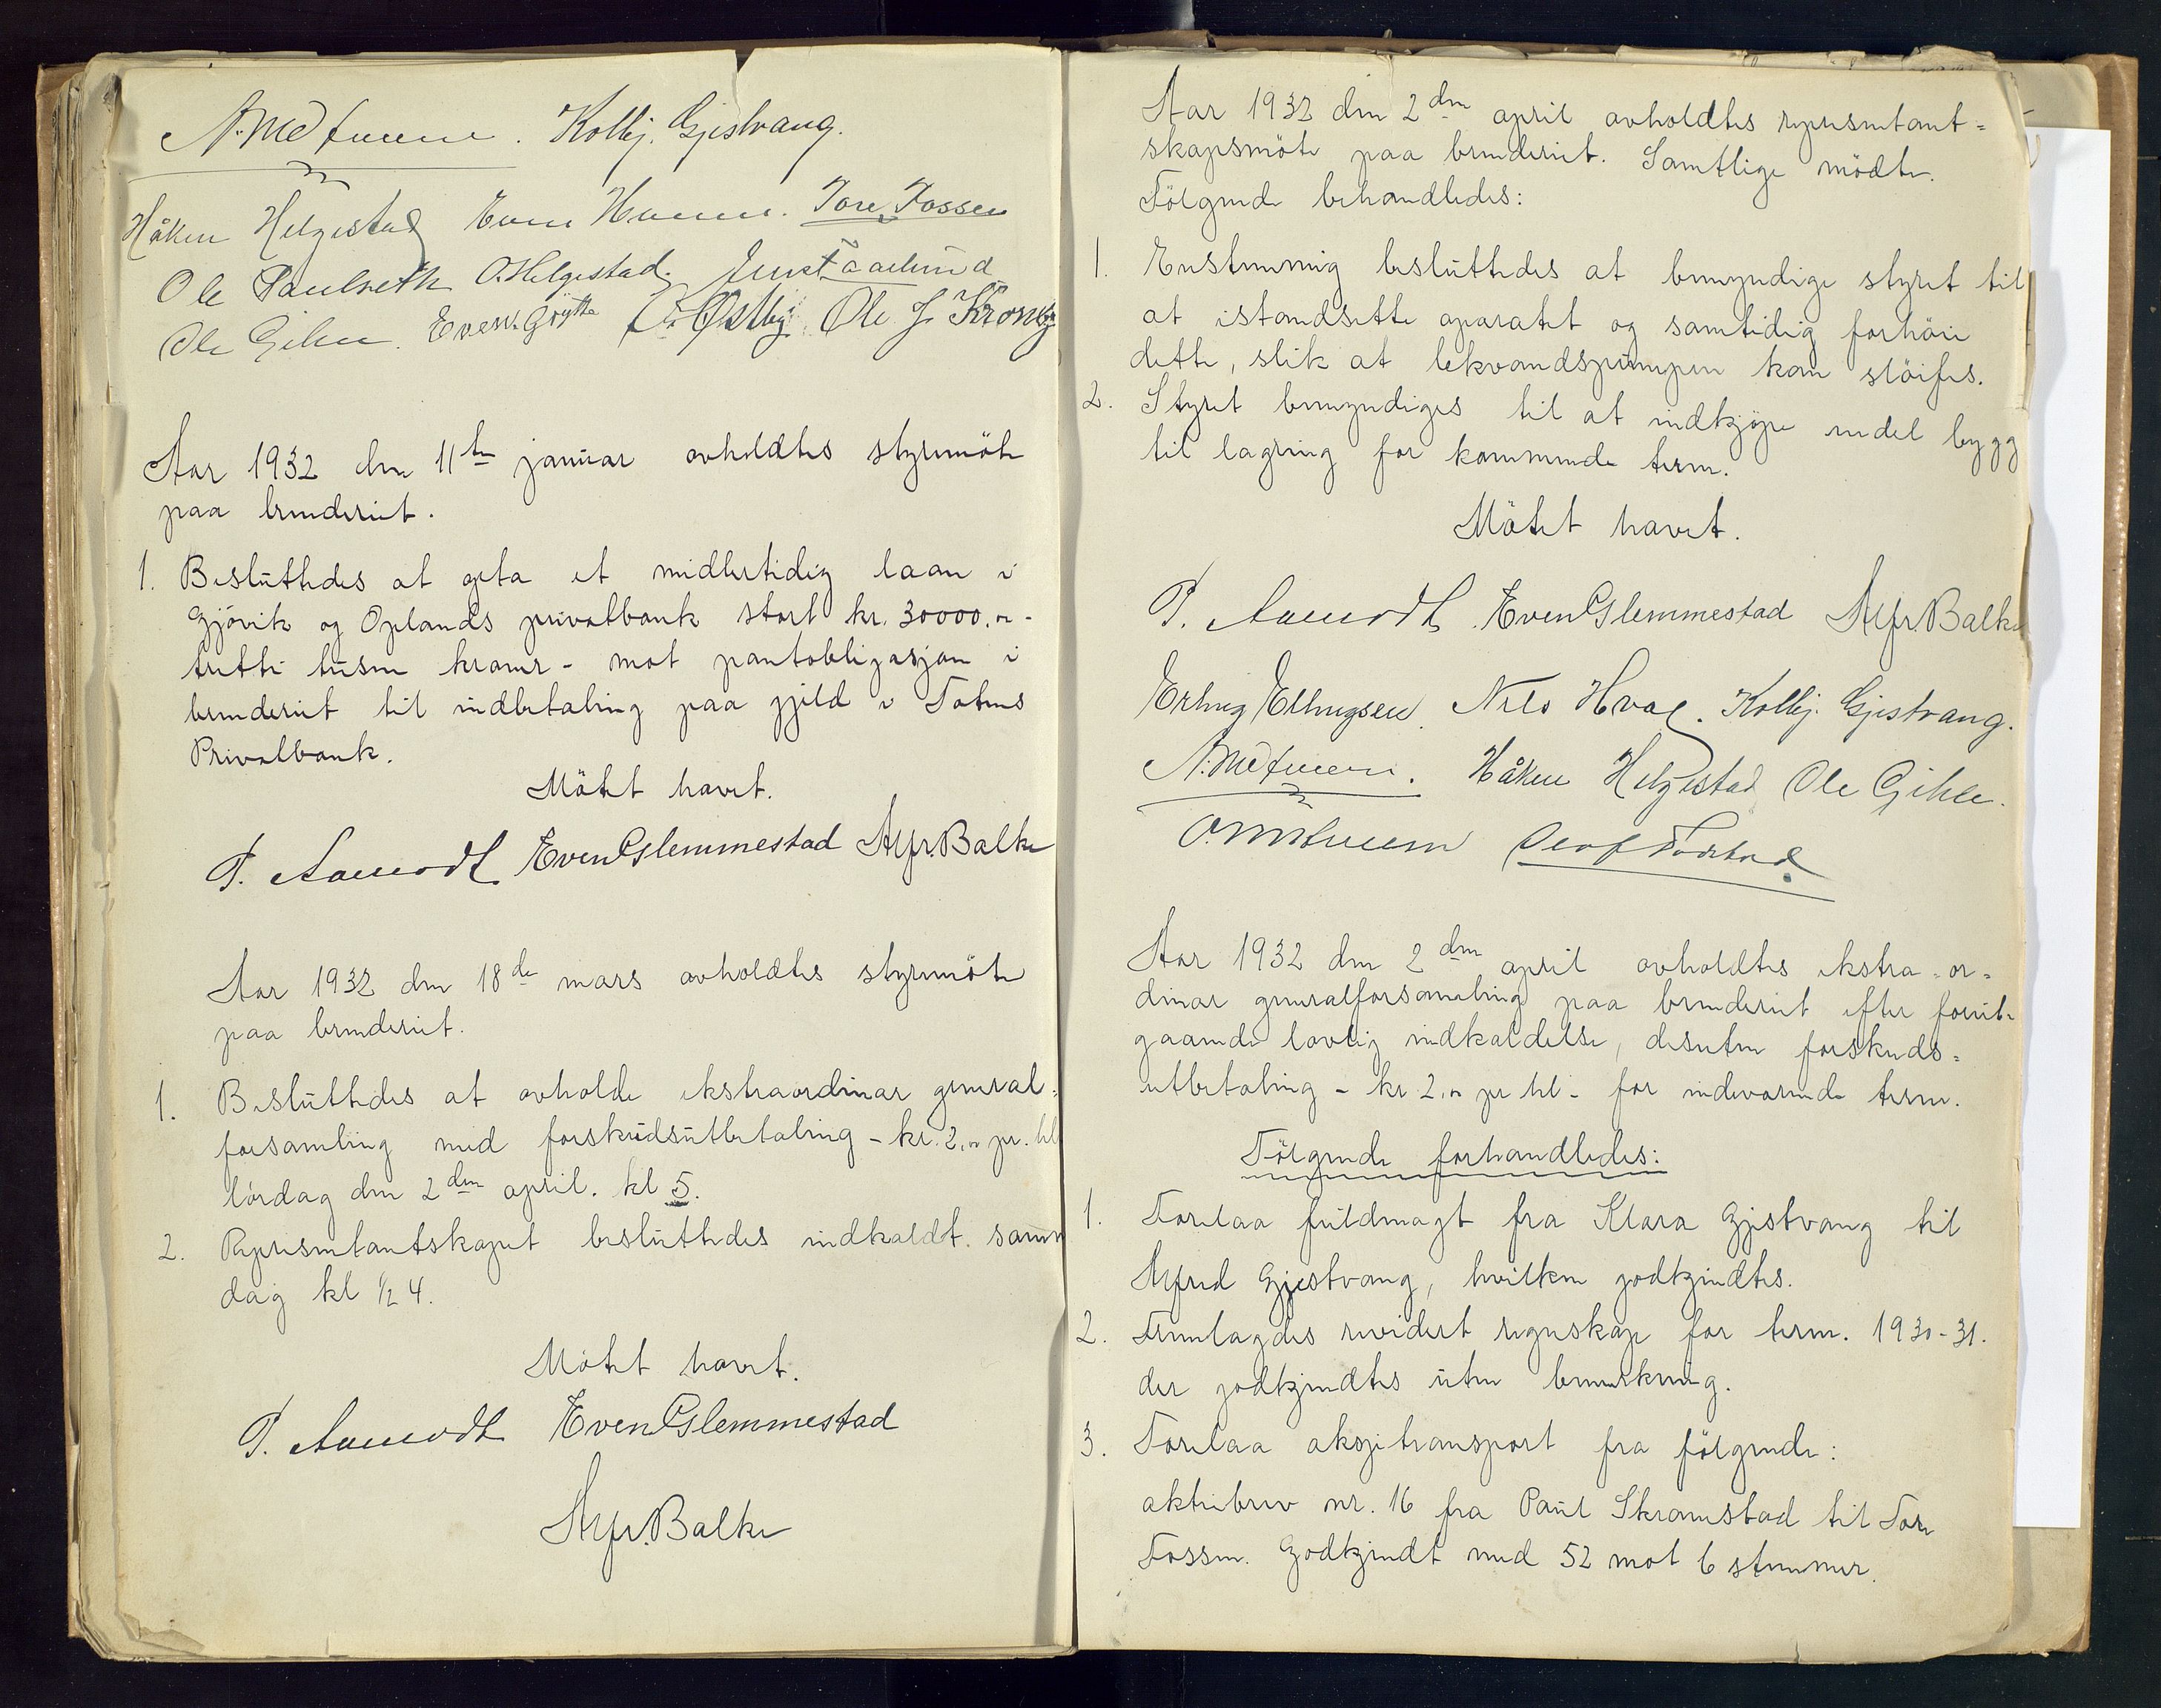 Kolbj. Gjestvang.
Håken Helgestad Even Hunn. Tore Fossen
Ole Paulseth O. Helgestad.
Ole Gihle. Even Grøtte O. Østby. Ole J. Kronby
Aar 1932 den 11te januar avholdtes styremöte
paa brenderiet.
1. Besluttedes at opta et midlertidig laan i
Gjövik og Oplands privatbank stort kr. 30000.00-
tretti tusen kroner - mot pantobligasjon i
brenderiet til indbetaling paa gjeld i Totens
Privatbank.
Mötet hævet.
P. Aamodt Even Glemmestad Alfr. Balke
Aar 1932 den 18de mars avholdtes styremöte
paa brenderiet.
1. Besluttedes at avholde ekstraordinær general=
forsamling med forskudsutbetaling - kr. 2.00 pr. hl
lördag den 2den april. kl 5.
2. Representantskapet besluttedes indkaldt. samme
dag kl ½ 4.
Mötet hævet.
P. Aamodt Even Glemmestad
Alfr. Balke
Aar 1932 den 2den april avholdtes representant=
skapsmöte paa brenderiet. Samtlige mödte.
Fölgende behandledes:
1. Enstemmig besluttedes at bemyndige styret til
at istandsette aparatet og samtidig forhöie
dette, slik at lekvandspumpen kan slöifes.
2. Styret bemyndiges til at indkjöpe endel bygg
til lagring for kommende term.
Mötet hævet.
P. Aamodt Even Glemmestad Alfr. Balke
Erling Ellingsen. Nils Hval. Kolbj. Gjestvang.
Håken Helgestad Ole Gihle.
Aar 1932 den 2den april avholdtes ekstra-or=
dinær generalforsamling paa brenderiet efter forut-
gaaende lovlig indkaldelse, desuten forskuds=
utbetaling - kr 2.00 pr hl - for indeværende term.
Fölgende forhandledes:
1. Forelaa fuldmagt fra Klara Gjestvang til
Alfred Gjestvang, hvilken godkjendtes.
2. Fremlagdes revidert regnskap for term. 1930-31.
der godkjendtes uten bemerkning.
3. Forelaa aksjetransport fra fölgende:
aktiebrev nr. 16 fra Paul Skramstad til Tore
Fossen. Godkjendt med 52 mot 6 stemmer.